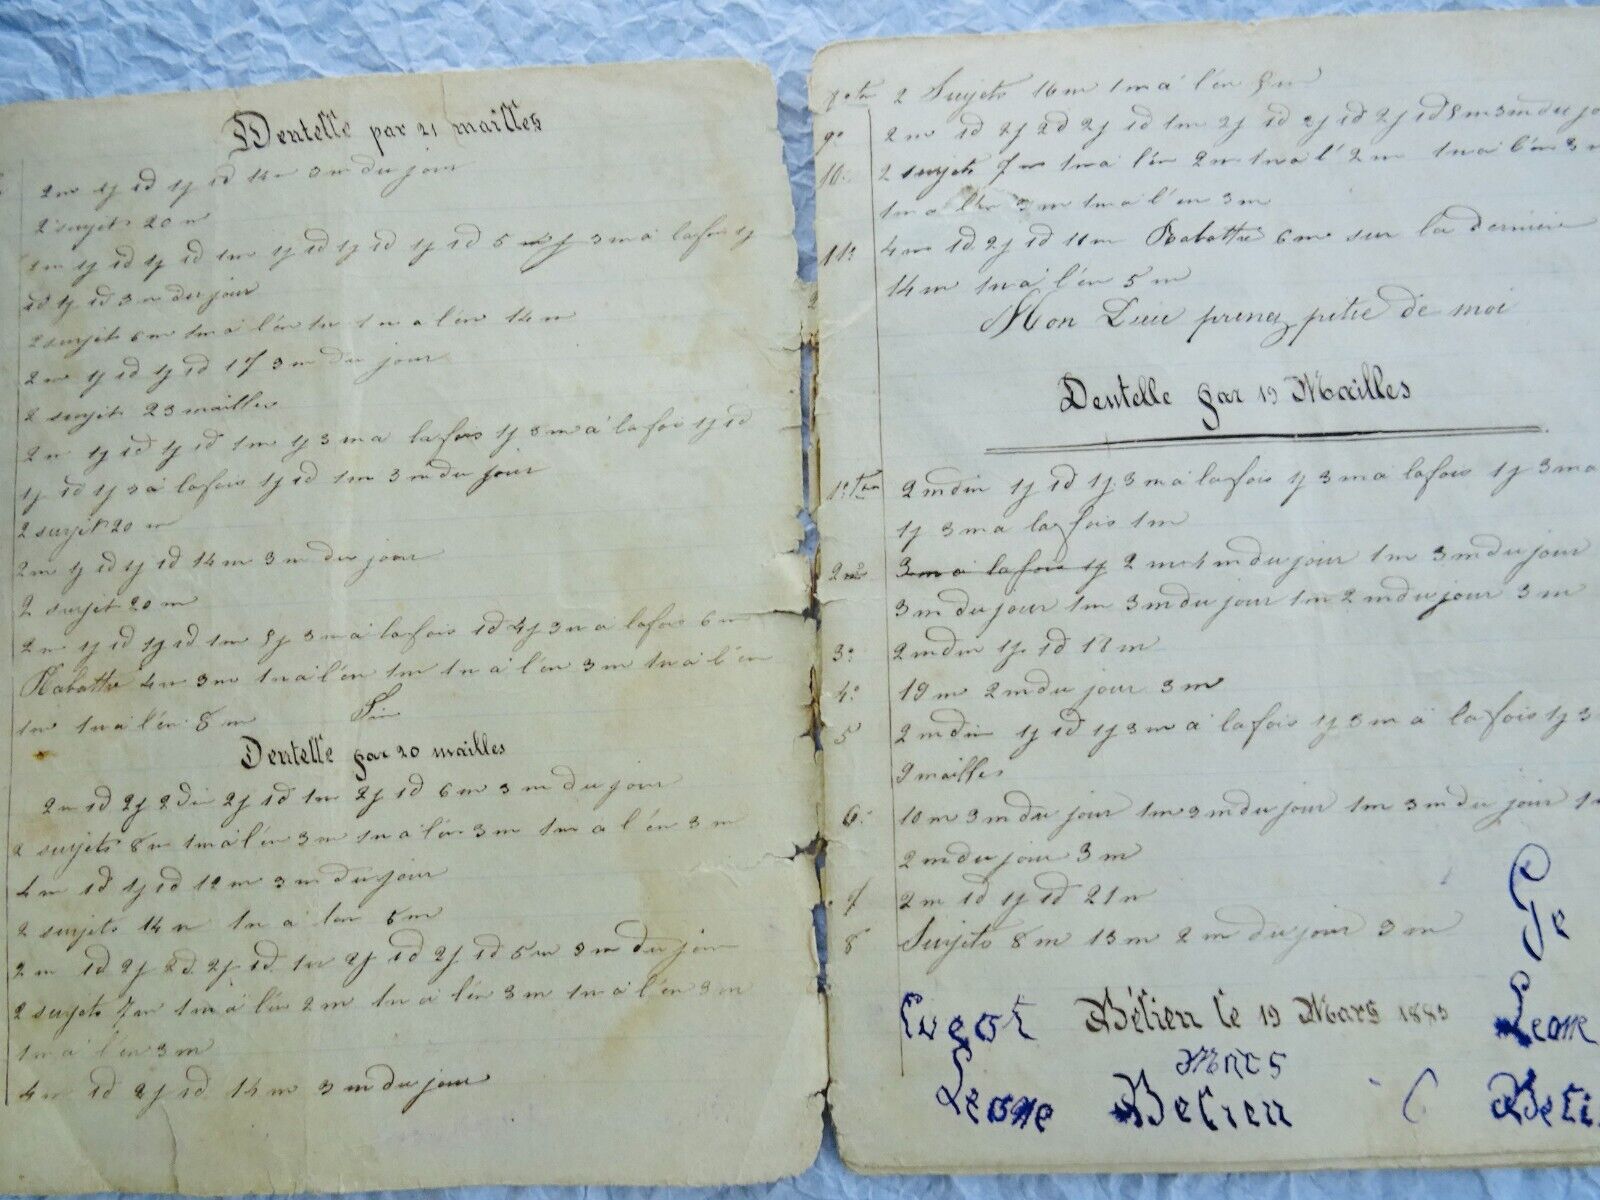 Dentelle par 21 mailles
2m 1j 1d 1j 1d 14m 3m du jour
2 surjets 20 m
1m 1j 1d 1j 1d 1m 1j 1d 1j 1d 1j 1d 5 3m à lafois 1j
1d 1j 1d 3m du jour
2 surjets 6m 1m à l'en 1m 1m a l'en 14m
2m 1j 1d 1j 1d 17 3m du jour
2 surjets 23 mailles
2m 1j 1d 1j 1d 1m 1j 3m a lafois 1j 3m à lafois 1j 1d
1j 1d 1j 3 à lafois 1j 1d 1m 3m du jour
2 surjet 20 m
2m 1j 1d 1j 1d 14m 3m du jour
2 surjet 20 m
2m 1j 1d 1j 1d 1m 3m à lafois 1d 3m a lafois 6m
Rabattre 4m 3m 1m à l'en 1m 1m à l'en 3m 1m à l'en
1m 1m à l'en 8m Fin
Dentelle par 20 mailles
2m 1d 2j 2d 2j 1d 1m 2j 1d 6m 3m du jour
2 surjets 8m 1m à l'en 3m 1m à l'en 3m 1m a l'en 3m
4m 1d 1j 1d 12m 3m du jour
2 surjets 14m 1m à l'en 5m
2m 1d 2j 2d 2j 1d 1m 2j 1d 2j 1d 5m 3m du jour
2 surjets 7m 1m à l'en 2m 1m à l'en 3m 1m à l'en 3m
1m à l'en 3m
4m 1d 2j 1d 14m 3m du jour
2 Surjets 16m 1m à l'en 8m
9° 2m 1d 2j 2d 2j 1d 1m 2j 1d 2j 1d 2j 1d 8m 3m du jo
10° 2 surjets 7m 1m à l'en 2m 1m à l' 2m 1m à l'en 3m
1m a l'en 3m 1m à l'en 3m
11° 4m 1d 2j 1d 11m Rabattre 6m sur la dernière
14m 1m à l'en 5m
Mon Dieu prenez pitié de moi
Dentelle par 19 Mailles
1° 2m din 1j 1d 1j 3m à lafois 1j 3m à lafois 1j 3m a
1j 3m a lafois 1m
2° 3m à lafois 1j 2m 1m du jour 1m 3m du jour
3m du jour 1m 3m du jour 1m 2m du jour 3m
3° 2m din 1j 1d 18m
4° 19m 2m du jour 3m
5 2m din 1j 1d 1j 3m à lafois 1j 3m à lafois 1j 3
9 mailles
6° 10m 3m du jour 1m 3m du jour 1m 3m du jour 1m
2m du jour 3m
7 2m 1d 1j 1d 21m
8 Surjets 8m 13m 2m du jour 3m
Je
Bétien le 19 Mars 1883
Leone
Leone Betien
Beti